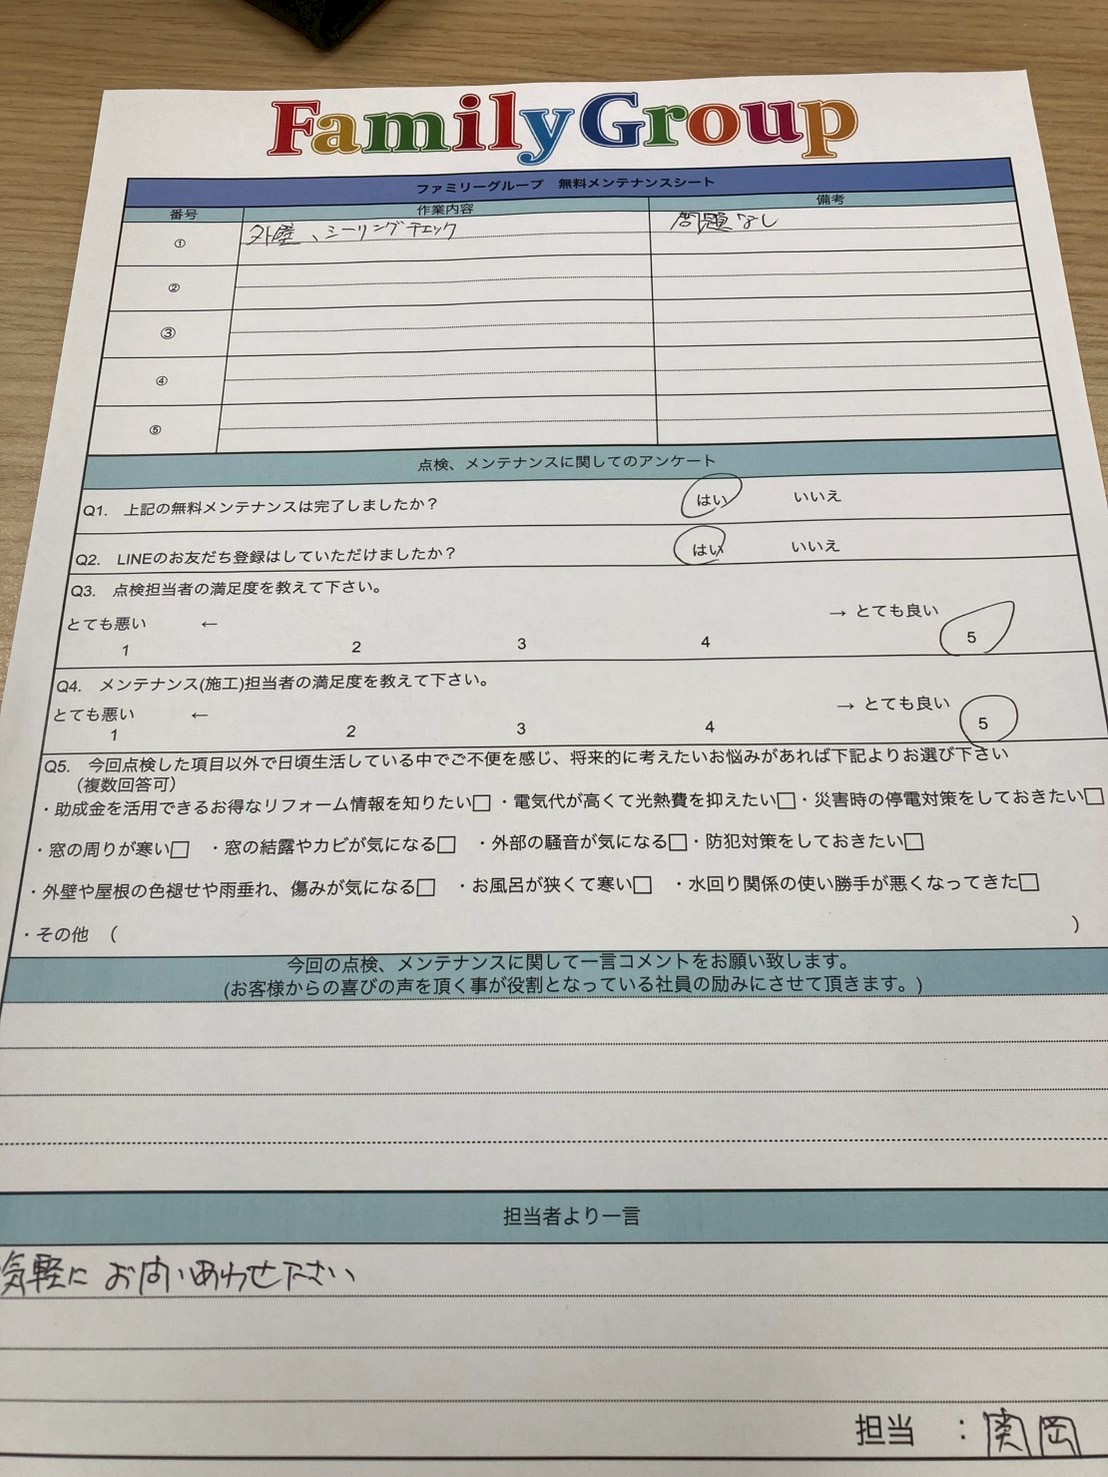 FamilyGroup
ファミリーグループ 無料メンテナンスシート
番号 作業内容 備考
① 外壁、シーリングチェック 問題なし
②
③
④
⑤
点検、メンテナンスに関してのアンケート
Q1. 上記の無料メンテナンスは完了しましたか？ はい いいえ
Q2. LINEのお友だち登録はしていただけましたか？ はい いいえ
Q3. 点検担当者の満足度を教えて下さい。
とても悪い ← → とても良い
1 2 3 4 5
Q4. メンテナンス(施工)担当者の満足度を教えて下さい。
とても悪い ← → とても良い
1 2 3 4 5
Q5. 今回点検した項目以外で日頃生活している中でご不便を感じ、将来的に考えたいお悩みがあれば下記よりお選び下さい
（複数回答可）
・助成金を活用できるお得なリフォーム情報を知りたい□ ・電気代が高くて光熱費を抑えたい□ ・災害時の停電対策をしておきたい□
・窓の周りが寒い□ ・窓の結露やカビが気になる□ ・外部の騒音が気になる□ ・防犯対策をしておきたい□
・外壁や屋根の色褪せや雨垂れ、傷みが気になる□ ・お風呂が狭くて寒い□ ・水回り関係の使い勝手が悪くなってきた□
・その他 （ ）
今回の点検、メンテナンスに関して一言コメントをお願い致します。
(お客様からの喜びの声を頂く事が役割となっている社員の励みにさせて頂きます。)
担当者より一言
気軽にお問いあわせ下さい
担当 ： 関岡